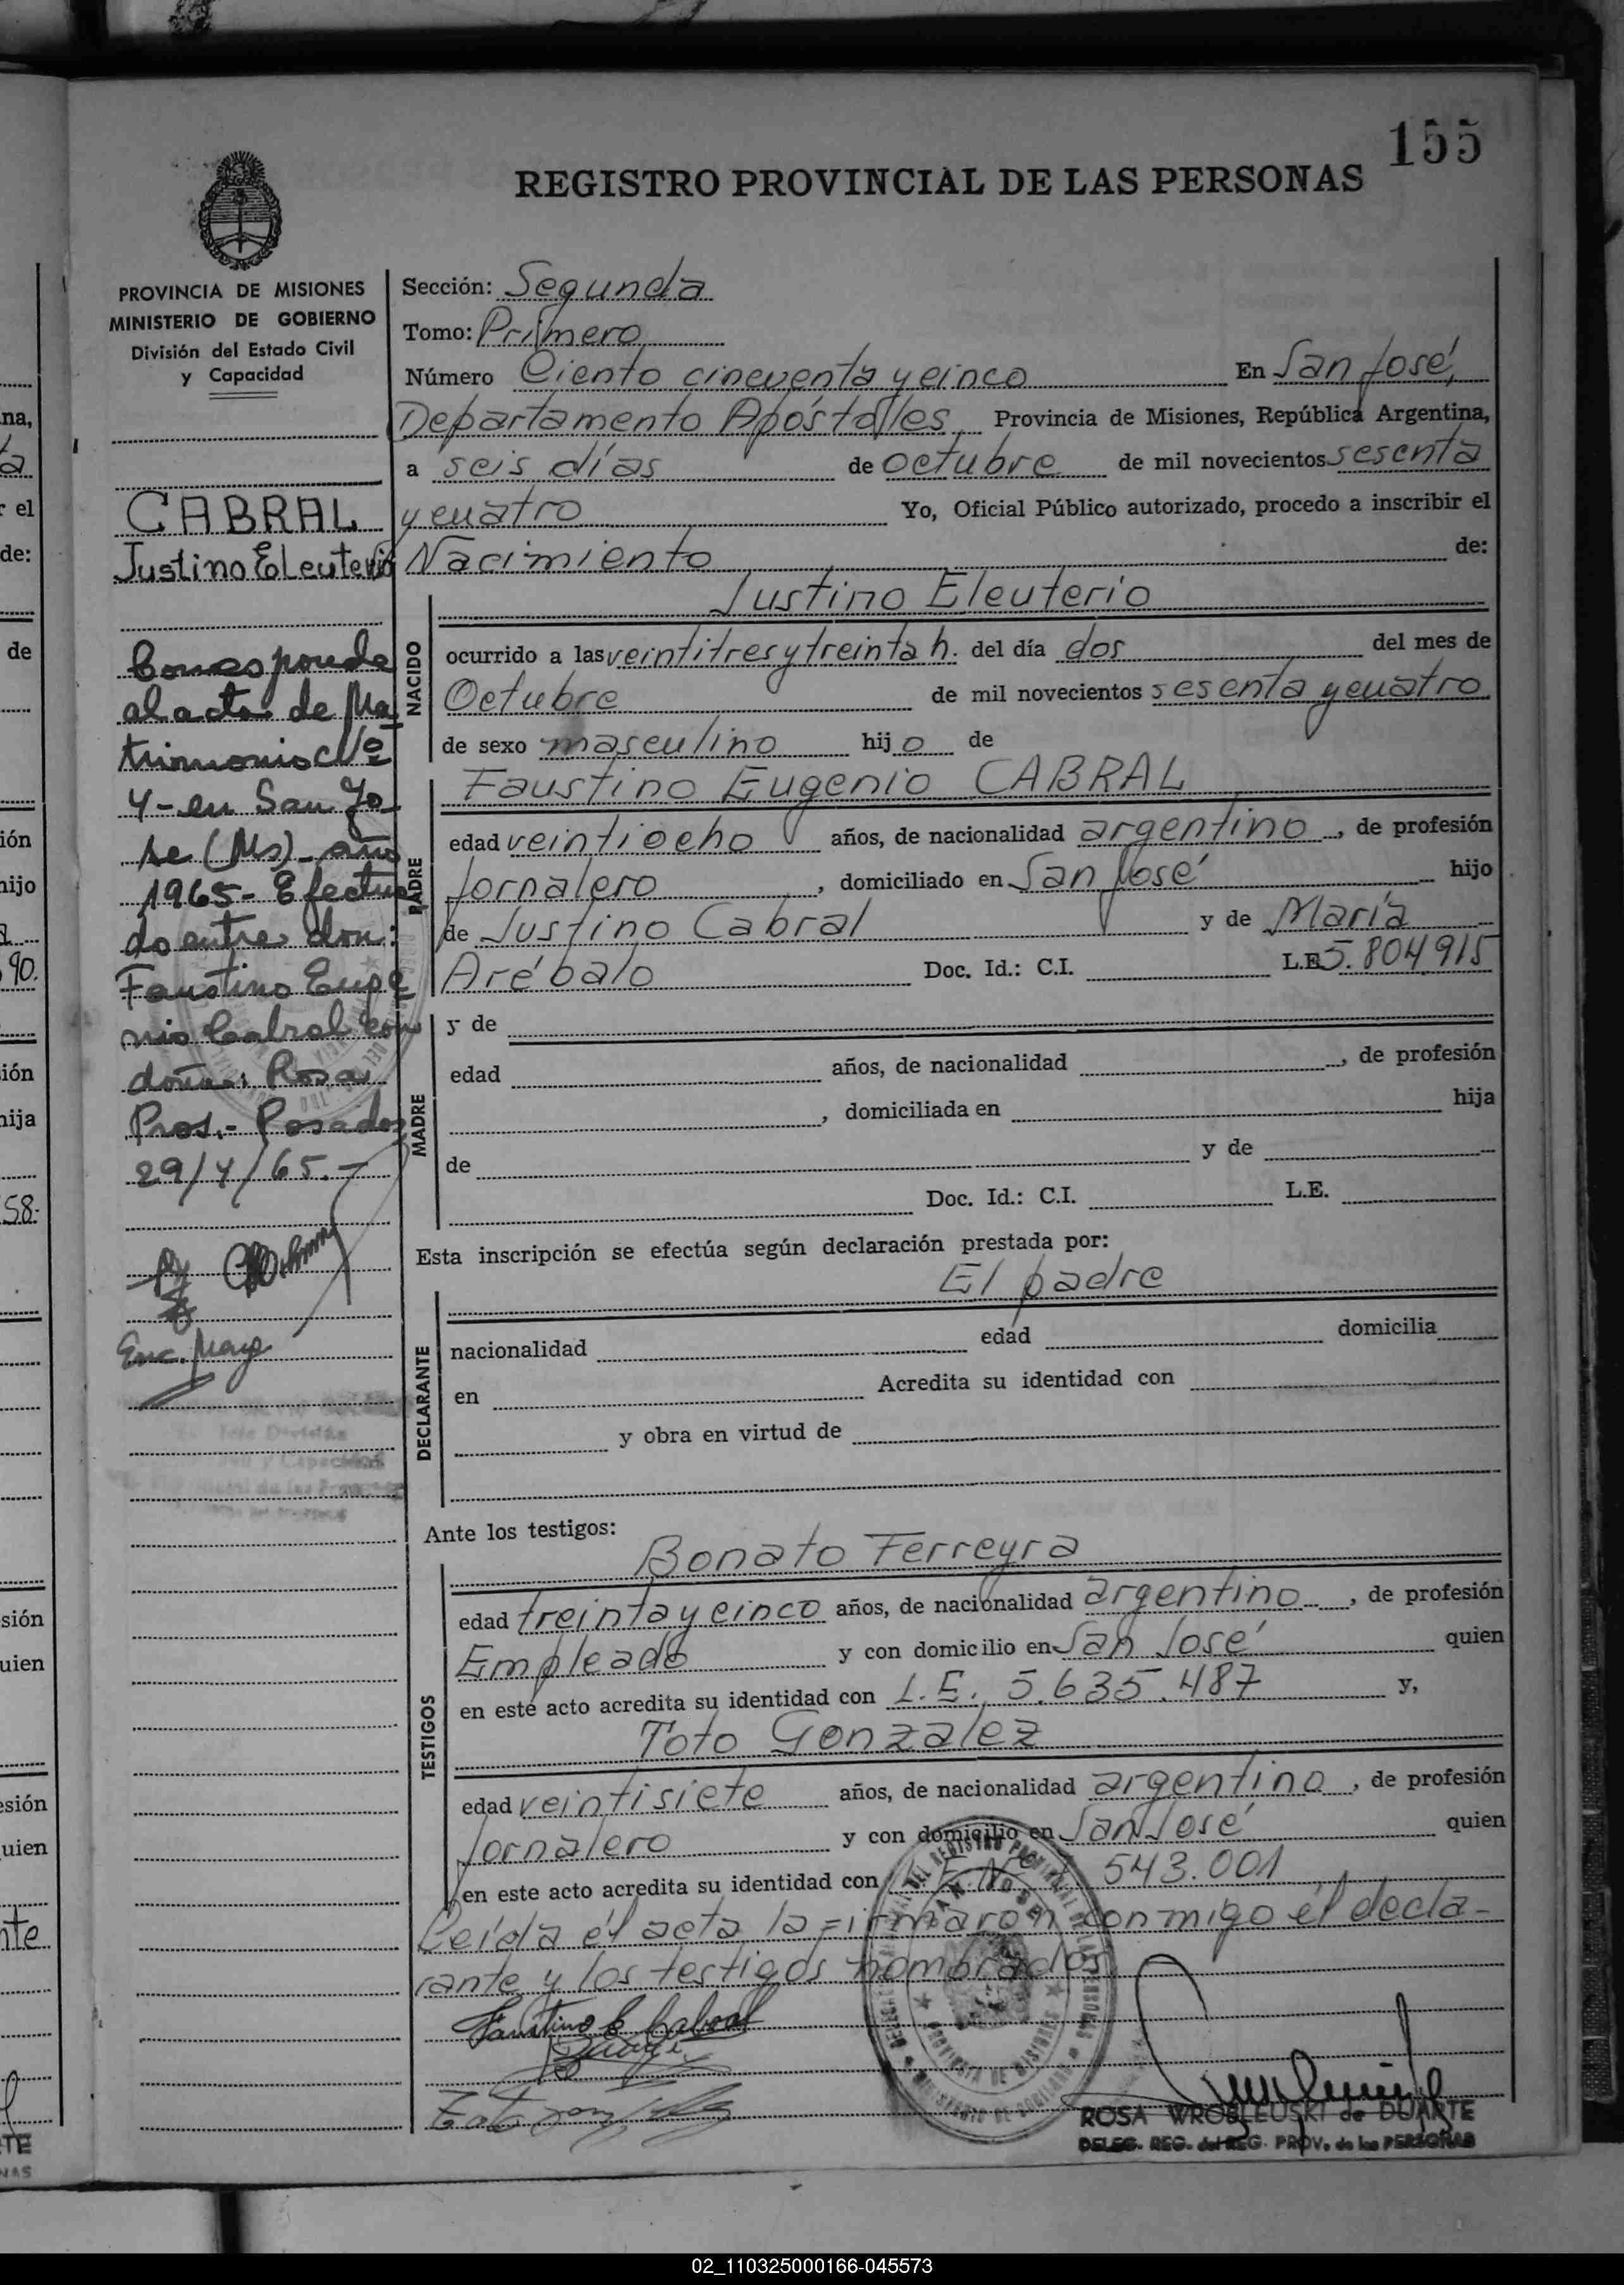 155
REGISTRO PROVINCIAL DE LAS PERSONAS
PROVINCIA DE MISIONES
MINISTERIO DE GOBIERNO
División del Estado Civil
y Capacidad
CABRAL
Justino Eleuterio
Corresponde
al acta de Ma
trimonio Nº
4- en San Jo
se (Ms)- año
1965- Efectua
do entre don:
Faustino Euge
nio Cabral con
doña: Rosa
Pros.- Posadas
29/4/65.-
Enc. Marg
Sección: Segunda
Tomo: Primero
Número Ciento cincuenta y cinco En San José,
Departamento Apóstoles, Provincia de Misiones, República Argentina,
a seis días de octubre de mil novecientos sesenta
y cuatro Yo, Oficial Público autorizado, procedo a inscribir el
Nacimiento de:
Justino Eleuterio
NACIDO
ocurrido a las veintitres y treinta h. del día dos del mes de
Octubre de mil novecientos sesenta y cuatro
de sexo masculino hijo de
PADRE
Faustino Eugenio CABRAL
edad veintiocho años, de nacionalidad argentino, de profesión
Jornalero, domiciliado en San José hijo
de Justino Cabral y de María
Arébalo Doc. Id.: C.I. L.E. 5.804.915
MADRE
y de
edad años, de nacionalidad , de profesión
, domiciliada en hija
de y de
Doc. Id.: C.I. L.E.
Esta inscripción se efectúa según declaración prestada por:
El padre
DECLARANTE
nacionalidad edad domicilia
en Acredita su identidad con
y obra en virtud de
Ante los testigos:
TESTIGOS
Bonato Ferreyra
edad treinta y cinco años, de nacionalidad argentino, de profesión
Empleado y con domicilio en San José quien
en este acto acredita su identidad con L.E. 5.635.487 y,
Toto Gonzalez
edad veintisiete años, de nacionalidad argentino, de profesión
Jornalero y con domicilio en San José quien
en este acto acredita su identidad con L.E. Nº 543.001
Leída el acta, la firmaron conmigo el decla-
rante y los testigos nombrados
Faustino E Cabral
ROSA WROBLEUSKI de DUARTE
DELEG. REG. del REG. PROV. de las PERSONAS
02_110325000166-045573